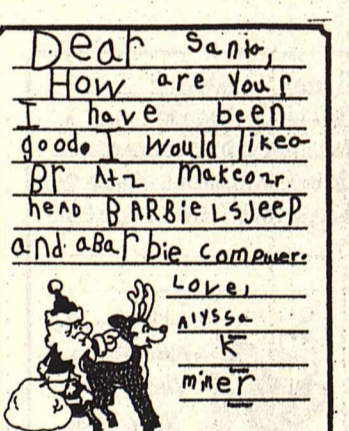 Dear Santa,
How are You?
I have been
good. I would likea
Br Atz Makeozr.
heAD BARBie LsJeep
and aBarbie Compwer.
Love,
Alyssa
K
miner